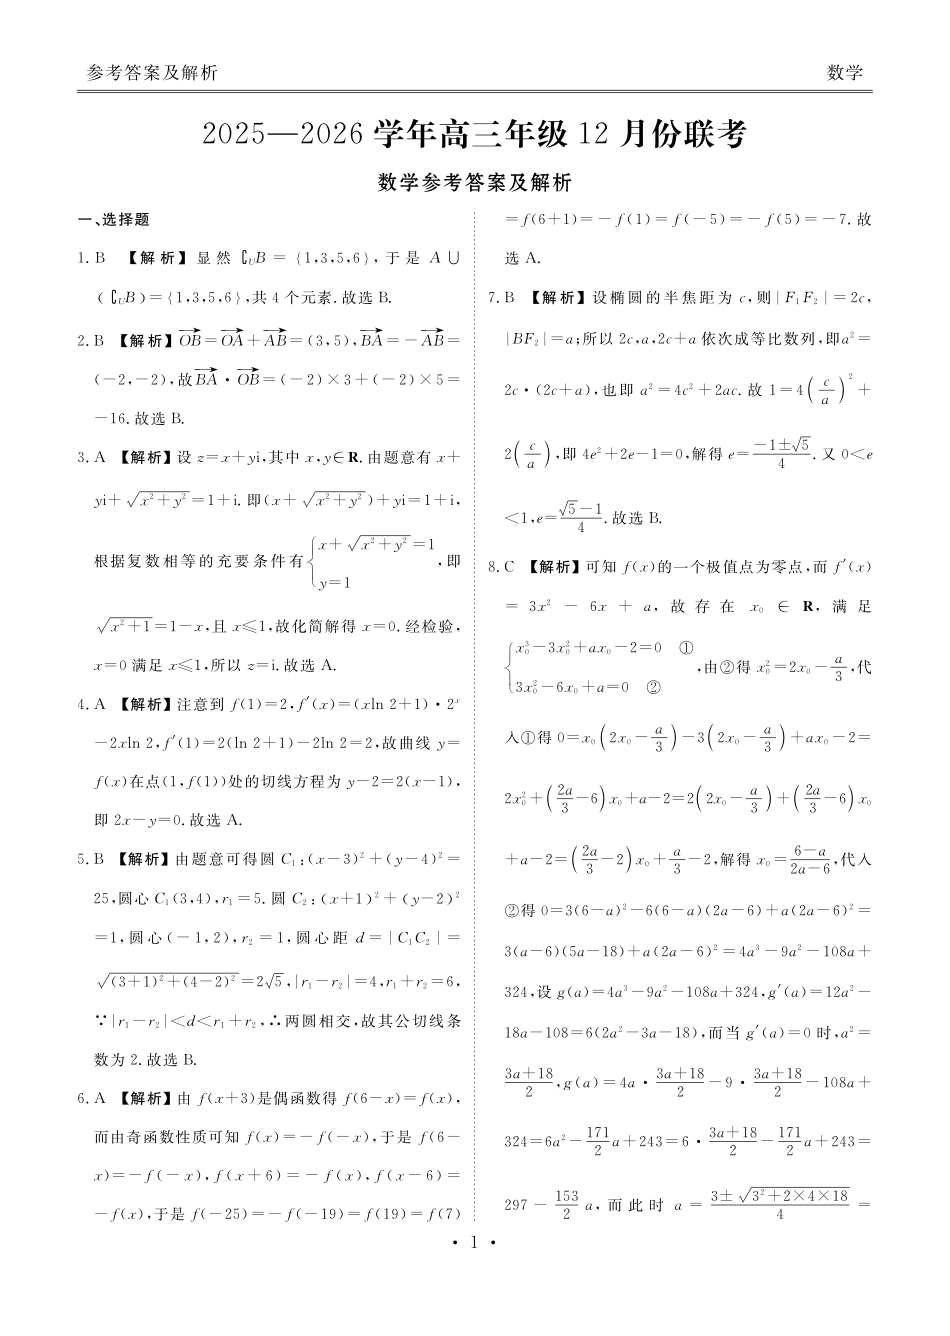 参考答案及解析 数学
2025—2026 学年高三年级 12 月份联考
数学参考答案及解析
一、选择题
1. B 【解析】显然 ∁UB = {1,3,5,6},于是 A ∪
(∁UB)={1,3,5,6},共 4 个元素.故选 B.
2. B 【解析】OB→=OA→+AB→=(3,5),BA→=-AB→=
(-2,-2),故BA→·OB→=(-2)×3+(-2)×5=
-16.故选 B.
3. A 【解析】设 z=x+yi,其中 x,y∈R.由题意有 x+
yi+√(x²+y²)=1+i.即(x+√(x²+y²))+yi=1+i,
根据复数相等的充要条件有{x+√(x²+y²)=1 y=1,即
√(x²+1)=1-x,且 x≤1,故化简解得 x=0.经检验,
x=0 满足 x≤1,所以 z=i.故选 A.
4. A 【解析】注意到 f(1)=2,f′(x)=(xln 2+1)·2ˣ
-2xln 2,f′(1)=2(ln 2+1)-2ln 2=2,故曲线 y=
f(x)在点(1,f(1))处的切线方程为 y-2=2(x-1),
即 2x-y=0.故选 A.
5. B 【解析】由题意可得圆 C₁:(x-3)²+(y-4)²=
25,圆心 C₁(3,4),r₁=5.圆 C₂:(x+1)²+(y-2)²
=1,圆心(-1,2),r₂=1,圆心距 d=|C₁C₂|=
√((3+1)²+(4-2)²)=2√5,|r₁-r₂|=4,r₁+r₂=6,
∵|r₁-r₂|<d<r₁+r₂,∴两圆相交,故其公切线条
数为 2.故选 B.
6. A 【解析】由 f(x+3)是偶函数得 f(6-x)=f(x),
而由奇函数性质可知 f(x)=-f(-x),于是 f(6-
x)=-f(-x),f(x+6)=-f(x),f(x-6)=
-f(x),于是 f(-25)=-f(-19)=f(19)=f(7)
=f(6+1)=-f(1)=f(-5)=-f(5)=-7.故
选 A.
7. B 【解析】设椭圆的半焦距为 c,则|F₁F₂|=2c,
|BF₂|=a;所以 2c,a,2c+a 依次成等比数列,即a²=
2c·(2c+a),也即 a²=4c²+2ac.故 1=4(c/a)²+
2(c/a),即 4e²+2e-1=0,解得 e=(-1±√5)/4.又 0<e
<1,e=(√5-1)/4.故选 B.
8. C 【解析】可知 f(x)的一个极值点为零点,而 f′(x)
= 3x² - 6x + a,故存在 x₀ ∈ R,满足
{x₀³-3x₀²+ax₀-2=0 ① 3x₀²-6x₀+a=0 ②,由②得 x₀²=2x₀-a/3,代
入①得 0=x₀(2x₀-a/3)-3(2x₀-a/3)+ax₀-2=
2x₀²+(2a/3-6)x₀+a-2=2(2x₀-a/3)+(2a/3-6)x₀
+a-2=(2a/3-2)x₀+a/3-2,解得 x₀=(6-a)/(2a-6),代入
②得 0=3(6-a)²-6(6-a)(2a-6)+a(2a-6)²=
3(a-6)(5a-18)+a(2a-6)²=4a³-9a²-108a+
324,设 g(a)=4a³-9a²-108a+324,g′(a)=12a²-
18a-108=6(2a²-3a-18),而当 g′(a)=0 时,a²=
(3a+18)/2,g(a)=4a·(3a+18)/2-9·(3a+18)/2-108a+
324=6a²-171/2a+243=6·(3a+18)/2-171/2a+243=
297-153/2a,而此时 a=(3±√(3²+2×4×18))/4=
· 1 ·